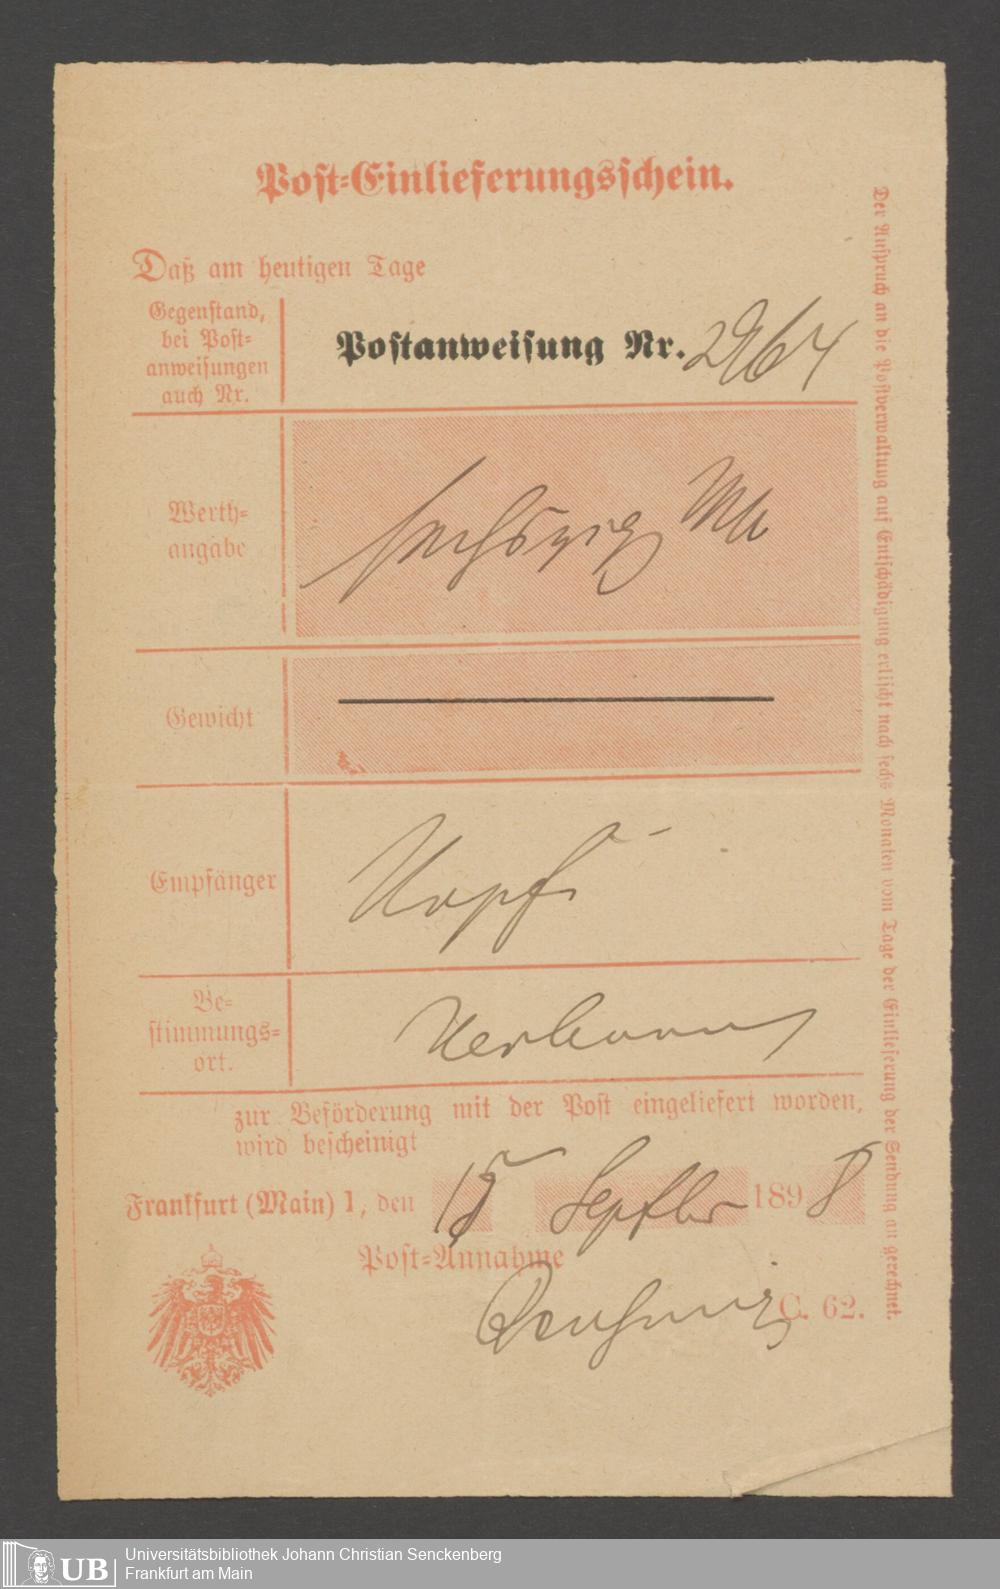 Post-Einlieferungsschein.
Daß am heutigen Tage
Gegenstand,
bei Post-
anweisungen
auch Nr.
Postanweisung Nr. 2964
Werth-
angabe
sechszig Mk
Gewicht
Empfänger
Kopf
Be-
stimmungs-
ort.
zur Beförderung mit der Post eingeliefert worden,
wird bescheinigt
Frankfurt (Main) 1, den 15 Septbr 1898
Post-Annahme
C. 62.
Der Anspruch an die Postverwaltung auf Entschädigung erlischt nach sechs Monaten vom Tage der Einlieferung der Sendung an gerechnet.
UB
Universitätsbibliothek Johann Christian Senckenberg
Frankfurt am Main